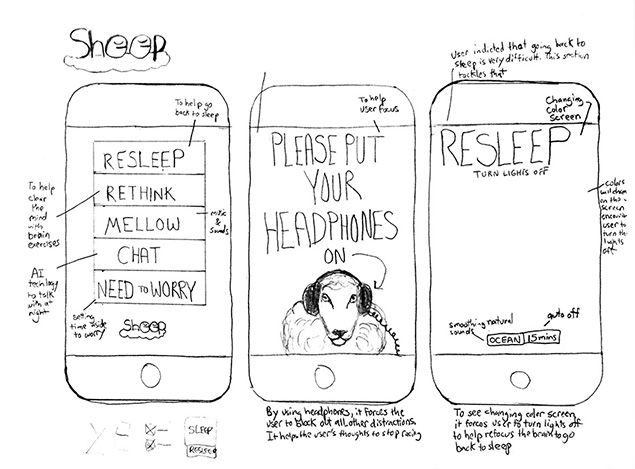 Sheep
User indicted that going back to
sleep is very difficult. This section
tackles that
To help go
back to sleep
RESLEEP
RETHINK
MELLOW
CHAT
NEED TO WORRY
Sheep
To help
clear the
mind
with
brain
exercises
music
&
sounds
AI
techlogy
to talk
with at
night
setting
time aside
to worry
SLEEP
RESLEEP
To help
user focus
PLEASE PUT
YOUR
HEADPHONES
ON
By using headphones, it forces the
user to block out all other distractions.
It helps the user's thoughts to stop racing
Changing
color
screen
RESLEEP
TURN LIGHTS OFF
colors
on the
screen
user to
turn the
lights
off
smoothing natural
sounds
auto off
OCEAN 15mins
To see changing color screen
it forces user to turn lights off
to help refocus the brain to go
back to sleep